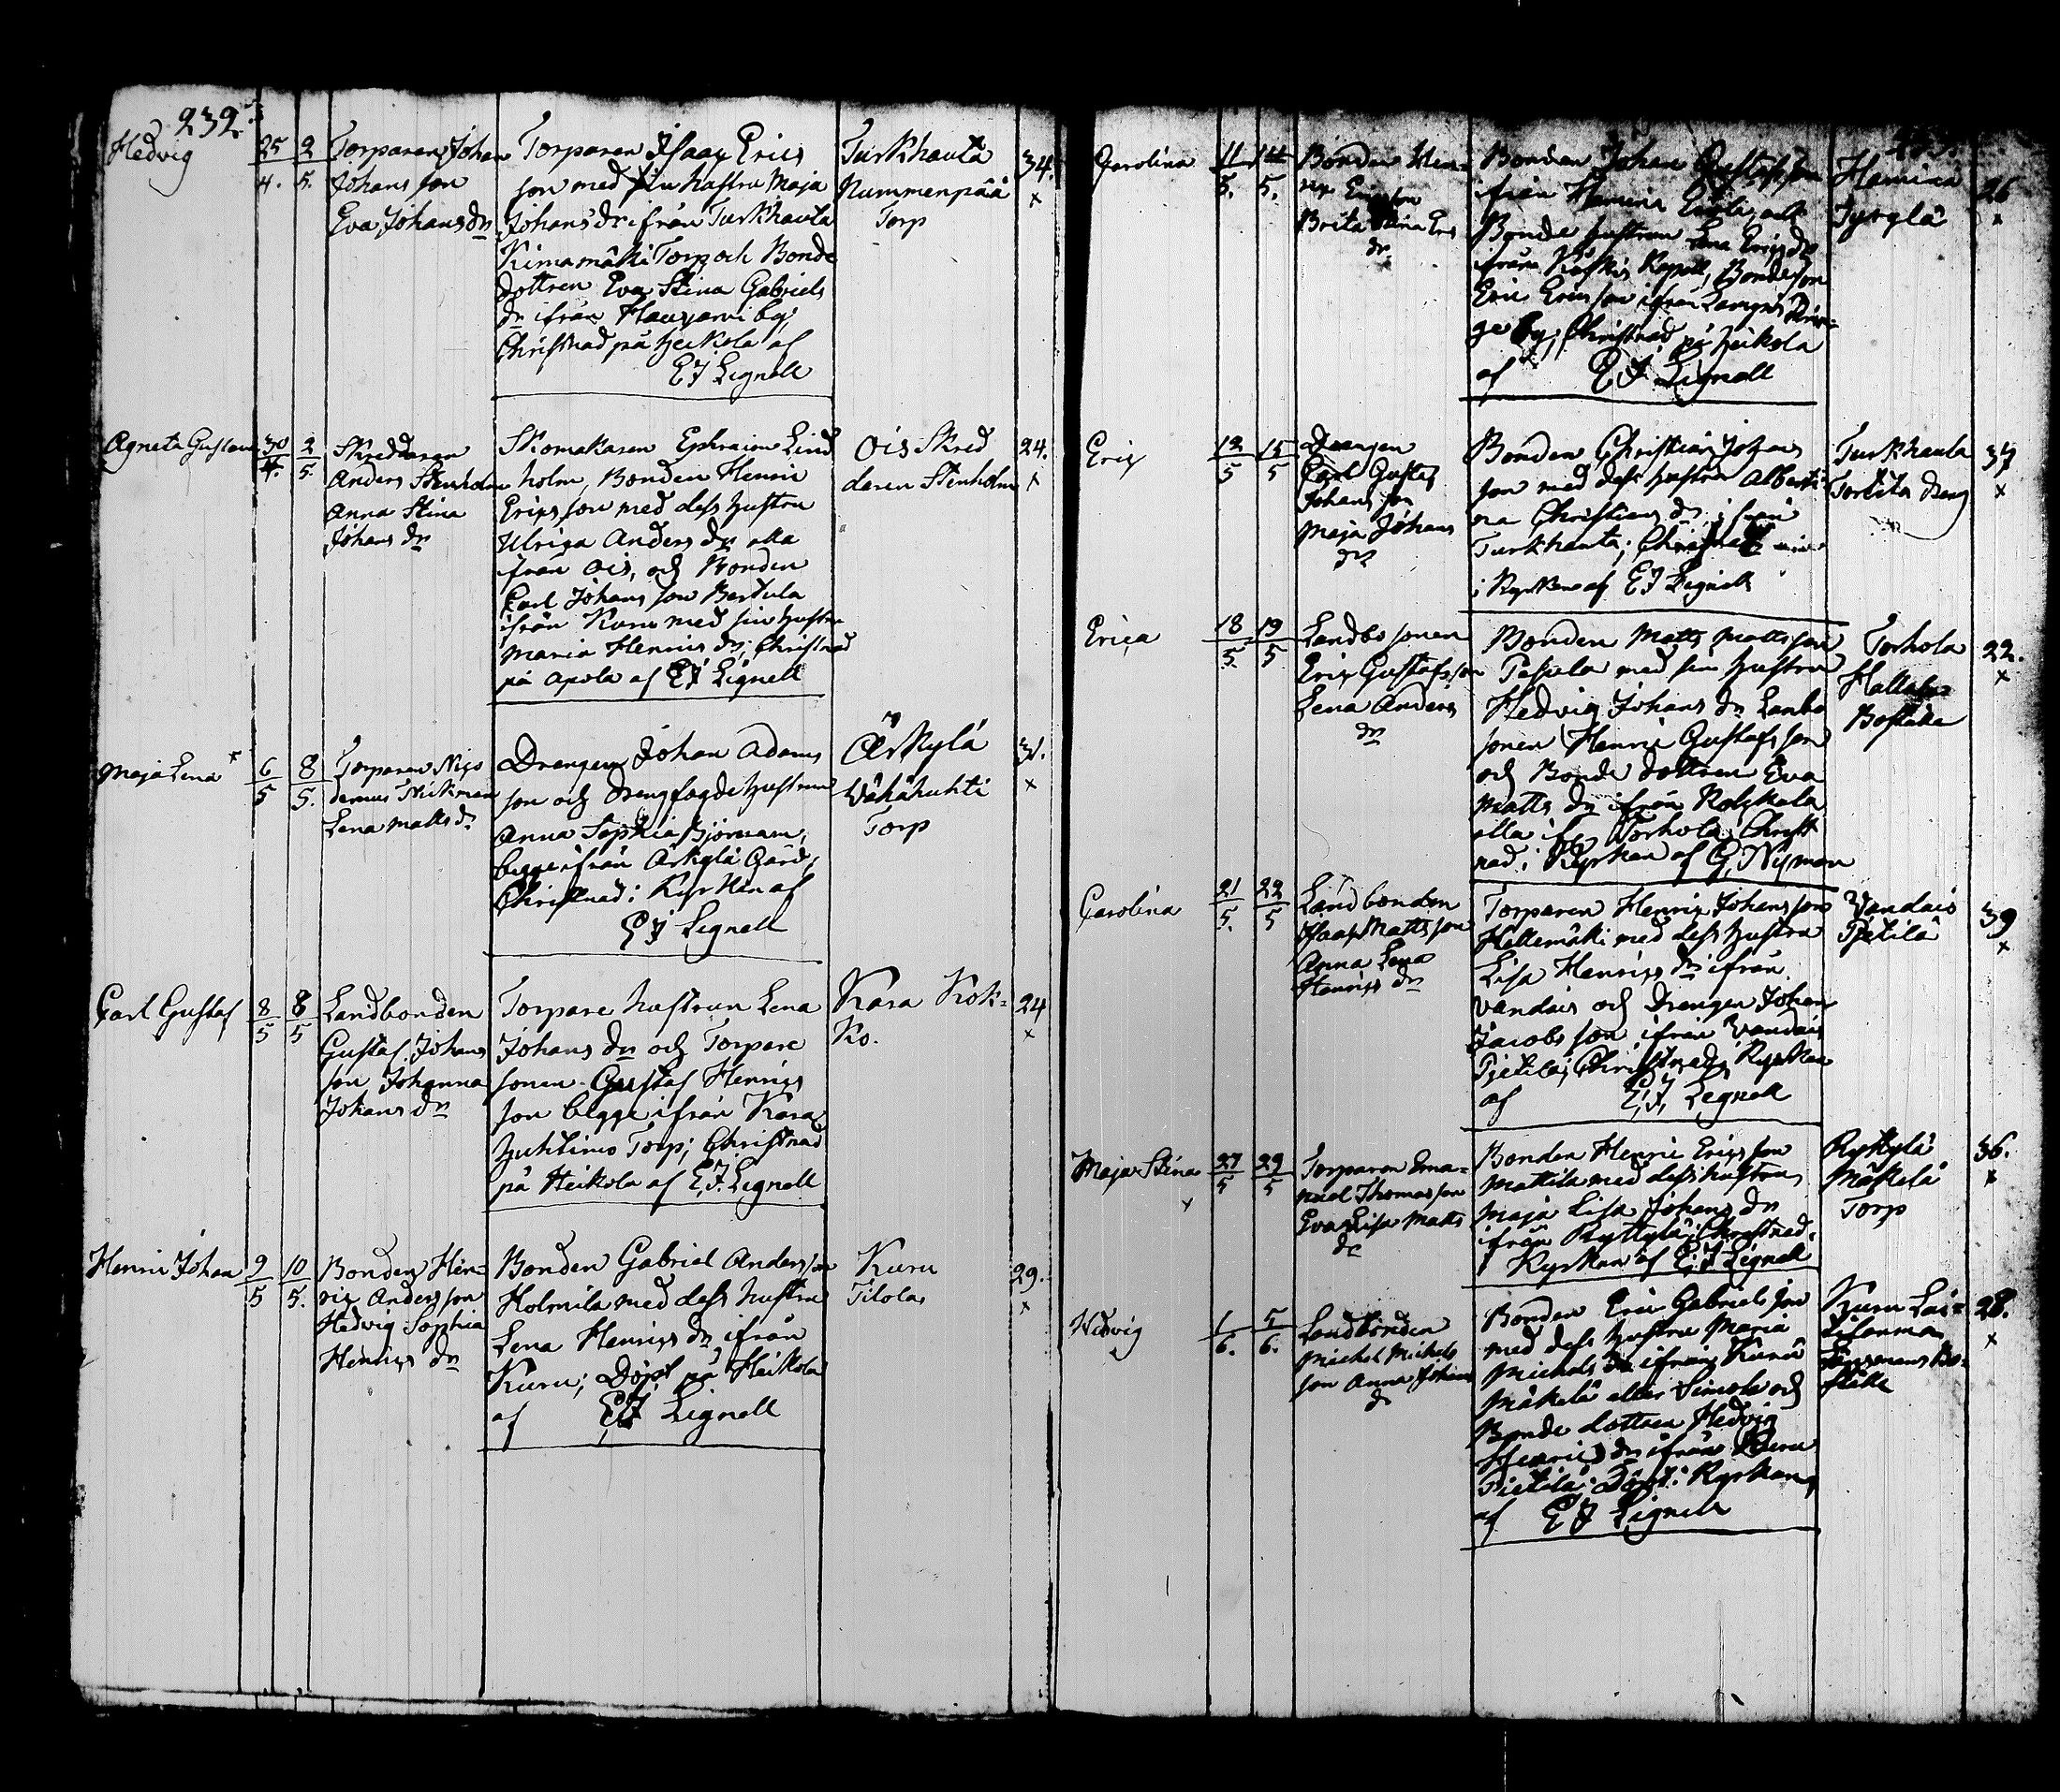 232
Hedvig 25/4. 2/5. Torparen Johan
Johans son
Eva Johans dr
Torparen Isaac Erics
son med sin hustru Maja
Johans dr ifrån Turkhauta
Kimamäki Torp och Bonde
dottren Eva Stina Gabriels
dr ifrån Hausjärvi by,
Christnad på Heikola af
E J Lignell
Turkhauta
Nummenpää
Torp
34.
x
Agneta Gustava 30/4. 2/5. Skreddaren
Anders Stenholm
Anna Stina
Johans dr
Skomakaren Ephraim Lind
holm, Bonden Henric
Ericsson med dess hustru
Ulrica Anders dr alla
ifrån Ois, och Bonden
Carl Johans son Bertula
ifrån Kuru med sin hustru
Maria Henrics dr; Christnad
på Apola af E J Lignell
Ois Skred
daren Stenholm
24.
x
Maja Lena x 6/5 8/5. Torparen Nico
demus Nickman
Lena Matts dr
Drengen Johan Adams
son och Drengfogde hustrun
Anna Sophia Björnram,
begge ifrån Ärkylä Gård,
Christnad i Kyrkan af
E J Lignell
Ärkylä
Vähähuhti
Torp
31.
x
Carl Gustaf 8/5 8/5 Landbonden
Gustaf Johans
son Johanna
Johans dr
Torpare hustrun Lena
Johans dr och Torpare
sonen Gustaf Henrics
son begge ifrån Kara
Huhtimo Torp; Christnad
på Heikola af E J. Lignell
Kara Kok-
ko.
24
x
Henric Johan 9/5 10/5. Bonden Hen-
ric Andersson
Hedvig Sophia
Henrics dr
Bonden Gabriel Andersson
Holmila med dess hustru
Lena Henrics dr ifrån
Kuru; Döpt på Heikola
af E J Lignell
Kuru
Tilola
29.
x
Carolina 11/5. 14/5. Bonden Hen-
ric Ericsson
Brita Stina Erics
dr
Bonden Johan Gustafsson
ifrån Hamina
Bonde hustrun Lena Erics dr
ifrån Kapell, Bondeson
Eric Ericsson ifrån
by; Christnad på Heikola
af E J Lignell
Hamina
Jyrylä
26
x
Eric 12/5 15/5 Drengen
Carl Gustaf
Johans son
Maja Johans
dr
Bonden Christian Johans
son med dess hustru Alberti
na Christians dr ifrån
Turkhauta; Christnad
i Kyrkan af E J Lignell
Turkhauta
37
x
Erica 18/5. 19/5 Landbo sonen
Eric Gustafsson
Lena Anders
dr
Bonden Matts Mattsson
Pasula med sin hustru
Hedvig Johans dr Lanbo
sonen Henric Gustafs son
och Bonde dottren Eva
Matts dr ifrån
alla ifr. Torhola, Christ
nad i Kyrkan af G, Nyman
Torhola
Boställe
22.
x
Carolina 21/5. 22/5 Landbonden
Isaac Matts son
Anna Lena
Henrics dr
Torparen Henric Johans son
Hellemäki med dess hustru
Lisa Henrics dr ifrån
Vandais och Drengen Johan
Jacobs son ifrån Vandais
Pietilä; Christnad i Kyrkan
af E, J, Lignell
Vandais
Pietilä
39
x
Maja Stina x 27/5 29/5 Torparen Ema-
nuel Thomas son
Eva Lisa Matts
dr
Bonden Henric Erics son
Mattila med dess hustru
Maja Lisa Johans dr
ifrån Ryttylä; Christnad i
Kyrkan af E. J Lignell
Ryttylä
Mäkelä
Torp
36.
x
Hedvig 1/6. 5/6. Landbonden
Michel Michels
son Anna Johans
dr
Bonden Eric Gabriels son
med dess hustru Maria
Michels dr ifrån Kuru
Mäkelä eller Simola och
Bonde dottren Hedvig
Henrics dr ifrån Kuru
Pietilä; Döpt i Kyrkan,
af E J Lignell
Kuru
Bo-
ställe
28.
x